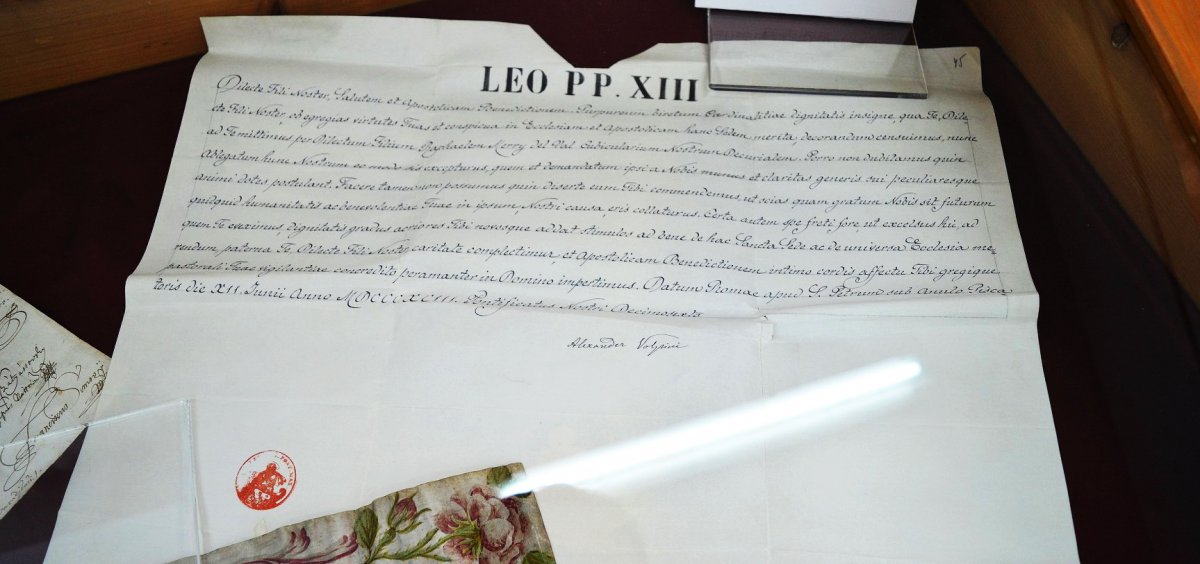 LEO PP. XIII
45
Dilecte Fili Noster, Salutem et Apostolicam Benedictionem. Purpureum biretum Cardinalitiae dignitatis insigne, qua Te, Dile-
cte Fili Noster, ob egregias virtutes Tuas et conspicua in Ecclesiam et Apostolicam hanc Sedem merita, decorandum censuimus, nunc
ad Te mittimus per Dilectum Filium Raphaelem Merry del Val Cubicularium Nostrum Decurialem. Porro non dubitamus quin
Ablegatum hunc Nostrum eo modo sis excepturus, quem et demandatum ipsi a Nobis munus et claritas generis sui peculiaresque
animi dotes postulant. Facere tamen non possumus quin diserte eum Tibi commendemus, ut scias quam gratum Nobis sit futurum
quidquid humanitatis ac benevolentiae Tuae in ipsum, Nostri causa, eris collaturus. Certa autem spe freti fore ut excelsus hic, ad
quem Te eveximus, dignitatis gradus acriores Tibi novosque addat stimulos ad bene de hac Sancta Sede ac de universa Ecclesia me-
rendum, paterna Te Dilecte Fili Noster caritate complectimur et Apostolicam Benedictionem intimo cordis affectu Tibi gregique
pastorali Tuae vigilantiae concredito peramanter in Domino impertimus. Datum Romae apud S. Petrum sub Anulo Pisca-
toris die XII. Junii Anno MDCCCXCIII. Pontificatus Nostri Decimosexto
Alexander Volpini